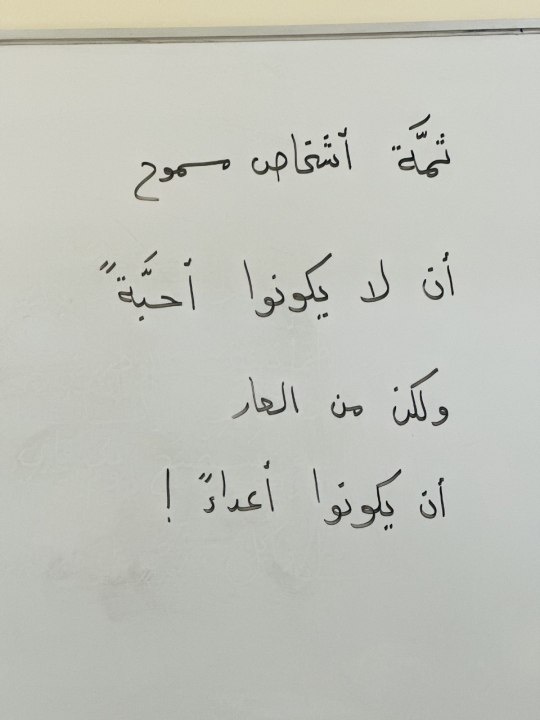 ثمَّة أشخاص مسموح
أن لا يكونوا أحبَّةً
ولكن من العار
أن يكونوا أعداءً !